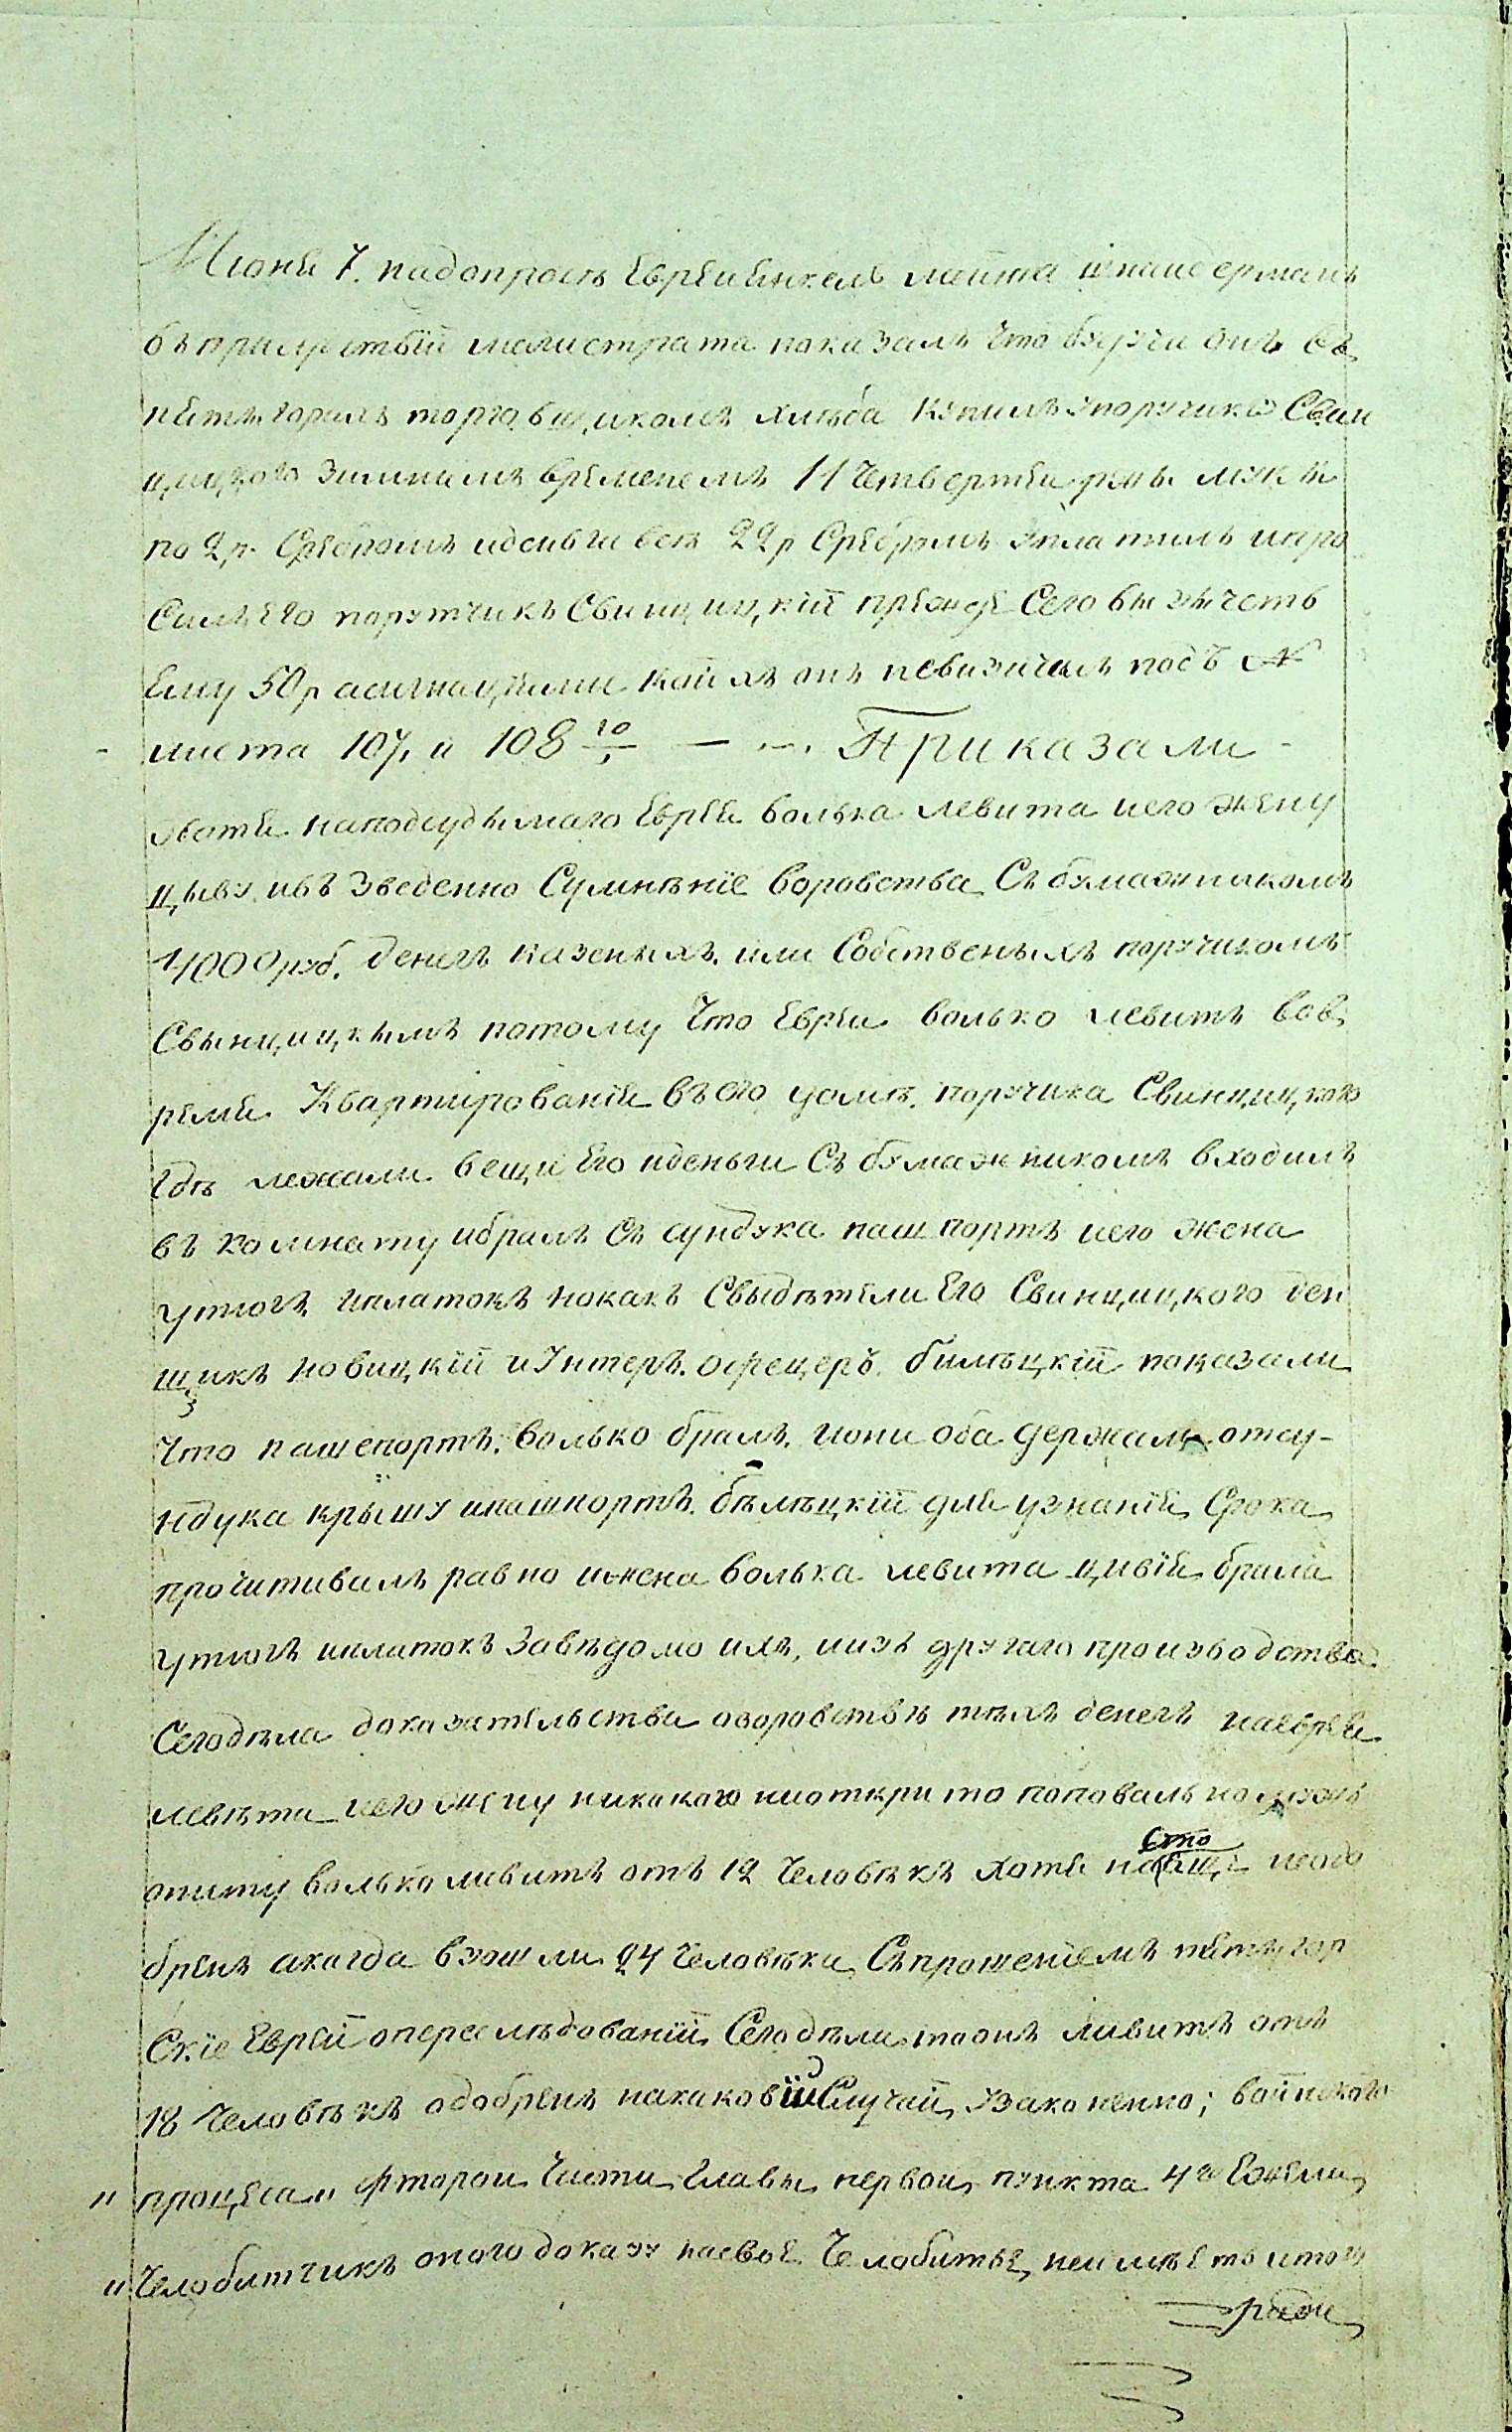 Июня 7. надопросѣ Еврей
въприсутствїи магистрата показалъ что будучи онъ въ
торговщикомъ хлѣба купилъ упоручика Свин
цицкого зимнимъ временемъ 11 четвертей муки
по 2 р. Сребромъ иденьги всѣ 22 р Сребромъ уплатилъ ипро
силъ Его порутчикъ Свинцицкїй прежде Сего вычесть
Ему 50 р асигнацїями коихъ онъ подъ №
листа 107, и 108 го — Приказали
хотя наподсудимаго Еврея волька левита иего жену
цыву ивъзведенно Сумнѣнїе воровства Съ бумажникомъ
1000 руб. денегъ казеныхъ или Собственыхъ поручикомъ
Свынцицкымъ потому что Еврей волько левитъ вов
ремя Квартированїя въ его домѣ поручика Свинцицкого
гдѣ лежали вещи Его иденьги Съ бумажникомъ входилъ
въ комнату ибралъ Съ сундука пашпортъ иего жена
утюгъ иплатокъ нокакъ Свыдѣтели Его Свинцицкого ден
щикъ новицкїй иУнтеръ офецеръ билѣцкїй показали
что пашепортъ волько бралъ иони оба держали отсу-
ндука крышу ипашпортъ бѣлѣцкїй для узнанїя Срока
прочитивалъ равно ижена волька левита цивїя брала
утюгъ иплатокъ Завѣдомо ихъ, иизъ другаго производства
Сегодѣла доказательства оворовствѣ тѣхъ денегъ наеврея
левѣта иего жену никакого неоткрито
волько левитъ отъ 12 человѣкъ хотя неодо
бренъ акогда взошли 24 человѣка Съпрошенїемъ пятигор
Скїе Еврей опереслѣдованїй Сегодѣла тоонъ ливитъ отъ
18 человѣкъ одобренъ накаковїй Случай узаконенно; воинского
" процеса " фторой части главы первой пункта 4го Ежели
" Челобитчикъ оного доказу насвое Челобитье неимѣетъ итого
ради